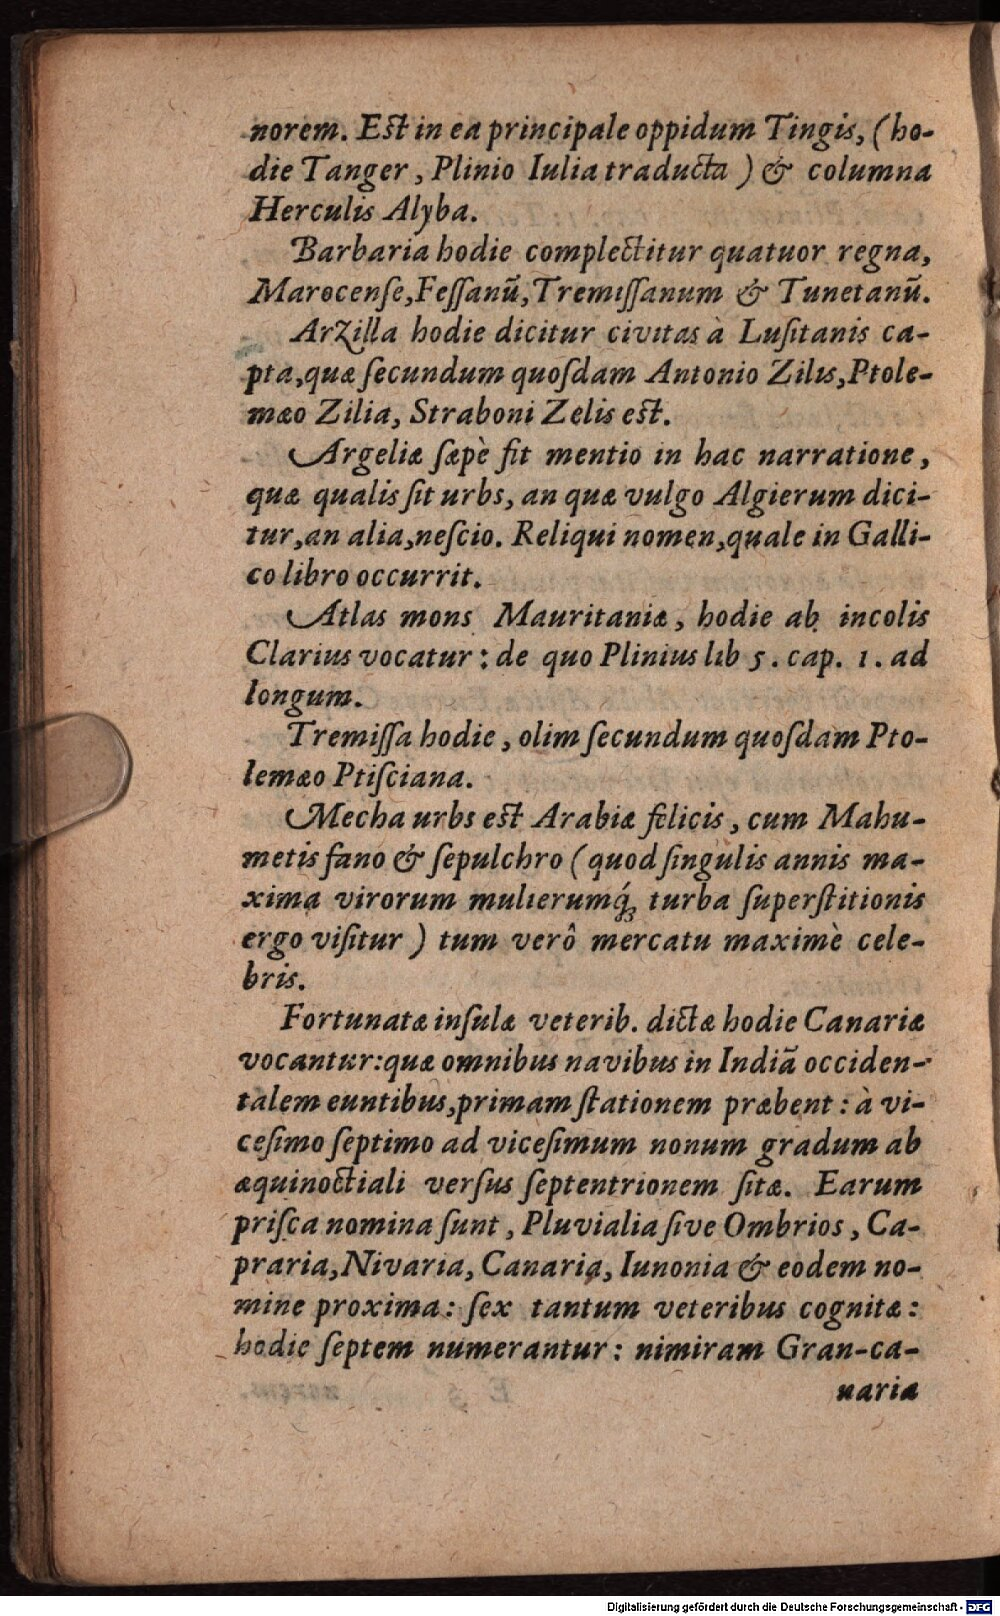 norem. Est in ea principale oppidum Tingis, (ho-
die Tanger, Plinio Iulia traducta) & columna
Herculis Alyba.
Barbaria hodie complectitur quatuor regna,
Marocenſe, Feſſanū, Tremiſſanum & Tunetanū.
Arzilla hodie dicitur civitas à Luſitanis ca-
pta, quæ ſecundum quoſdam Antonio Zilis, Ptole-
mæo Zilia, Straboni Zelis est.
Argeliæ ſæpè fit mentio in hac narratione,
quæ qualis ſit urbs, an quæ vulgo Algierum dici-
tur, an alia, neſcio. Reliqui nomen, quale in Galli-
co libro occurrit.
Atlas mons Mauritaniæ, hodie ab incolis
Clarius vocatur: de quo Plinius lib 5. cap. 1. ad
longum.
Tremiſſa hodie, olim ſecundum quoſdam Pto-
lemæo Ptiſciana.
Mecha urbs est Arabiæ felicis, cum Mahu-
metis fano & ſepulchro (quod ſingulis annis ma-
xima virorum mulierumq́ꝫ turba ſuperſtitionis
ergo viſitur) tum verô mercatu maximè cele-
bris.
Fortunatæ inſulæ veterib. dictæ hodie Canariæ
vocantur: quæ omnibus navibus in Indiā occiden-
talem euntibus, primam ſtationem præbent: à vi-
ceſimo ſeptimo ad viceſimum nonum gradum ab
æquinoctiali verſus ſeptentrionem ſitæ. Earum
priſca nomina ſunt, Pluvialia ſive Ombrios, Ca-
praria, Nivaria, Canaria, Iunonia & eodem no-
mine proxima: ſex tantum veteribus cognitæ:
hodie ſeptem numerantur: nimiram Gran-ca-
naria
Digitalisierung gefördert durch die Deutsche Forschungsgemeinschaft - DFG